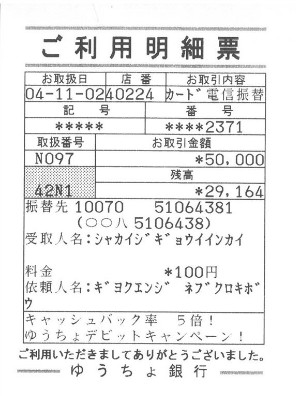 ご利用明細票
お取扱日 店番 お取引内容
04-11-02 40224 カード電信振替
記号 番号
***** ****2371
取扱番号 お取引金額
N097 *50,000
残高
42N1 *29,164
振替先 10070 51064381
(〇〇八 5106438)
受取人名:シャカイジギョウイインカイ
料金 *100円
依頼人名:ギヨクエンジ ネブクロキボ
ウ
キャッシュバック率 5倍!
ゆうちょデビットキャンペーン!
ご利用いただきましてありがとうございました。
ゆうちょ銀行